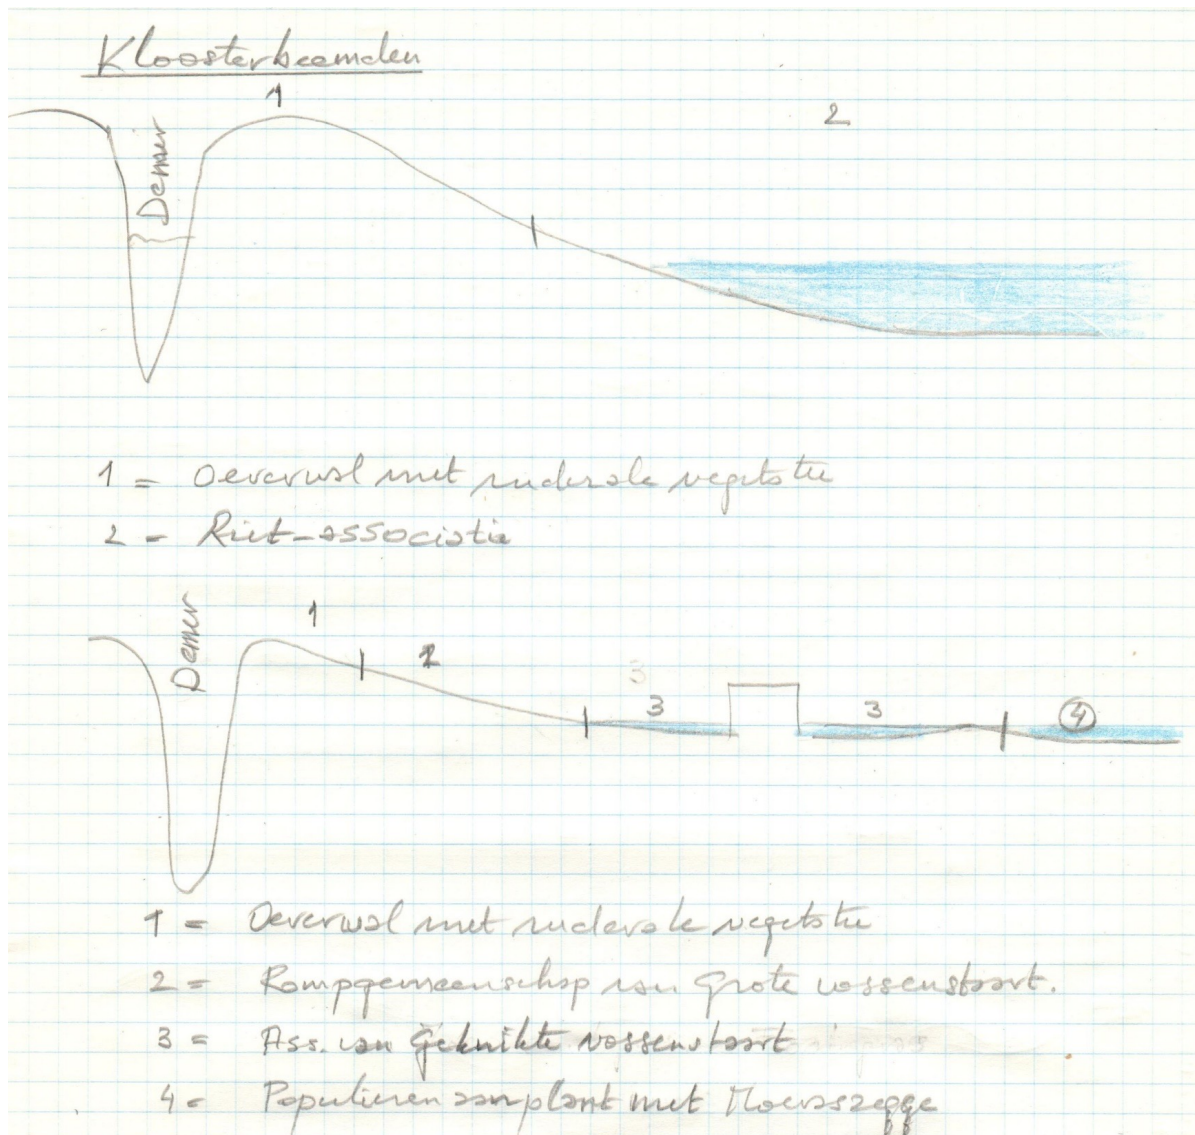 Kloosterbeemden
1
2
Demer
1 = Oeverwal met ruderale vegetatie
2 = Riet-associatie
Demer
1
2
3
3
4
1 = Oeverwal met ruderale vegetatie
2 = Rompgemeenschap van Grote vossenstaart.
3 = Ass. van Geknikte vossenstaart
4 = Populierenaanplant met Moeraszegge